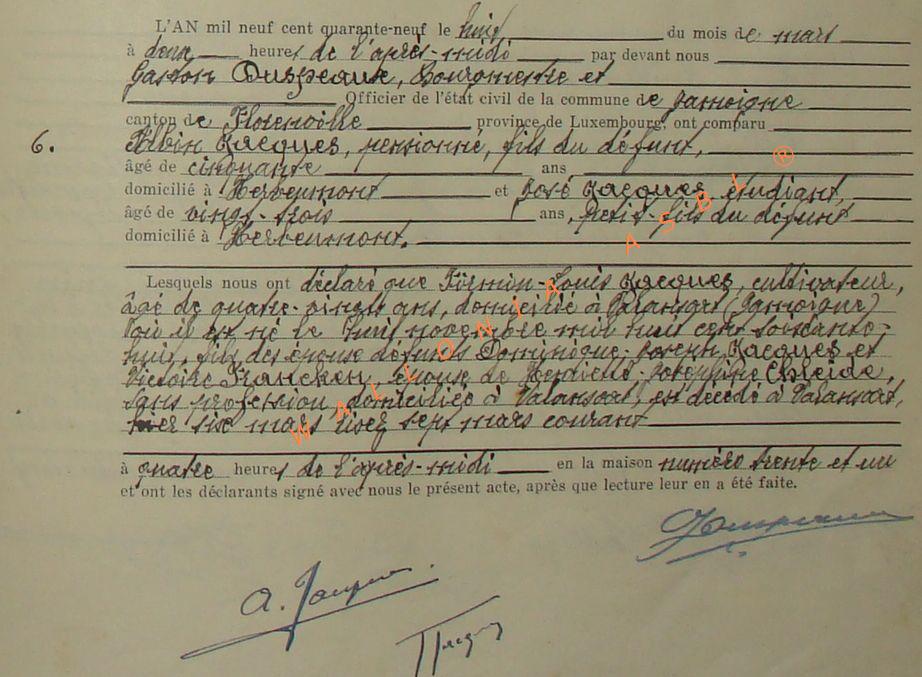 L'AN mil neuf cent quarante-neuf le huit du mois de mars
à deux heures de l'après-midi par devant nous
Gaston Duspeaux, Bourgmestre et
Officier de l'état civil de la commune de Jamoigne
canton de Florenville province de Luxembourg, ont comparu
6. Albin Jacques, pensionné, fils du défunt,
âgé de cinquante ans
domicilié à Herbeumont et José Jacques, étudiant,
âgé de vingt-trois ans, petit-fils du défunt
domicilié à Herbeumont.
Lesquels nous ont déclaré que Firmin-Louis Jacques, cultivateur,
âgé de quatre-vingts ans, domicilié à Valansart (Jamoigne)
où il est né le huit novembre mil huit cent soixante-
huit, fils des époux défunts Dominique-Joseph Jacques et
Victoire Francken, époux de Joséphine
sans profession, domiciliée à Valansart, est décédé à Valansart,
hier sept mars courant
à quatre heures de l'après-midi en la maison numéro trente et un
et ont les déclarants signé avec nous le présent acte, après que lecture leur en a été faite.
A. Jacques
WALLONIA ASBL ®